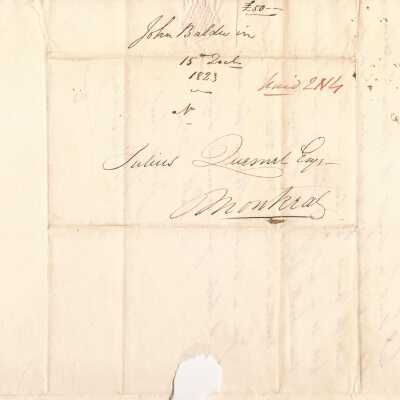 £50
John Baldwin
15th Decb
1823
N
Paid 2N4
Julius Quesnel Esqr
Montreal